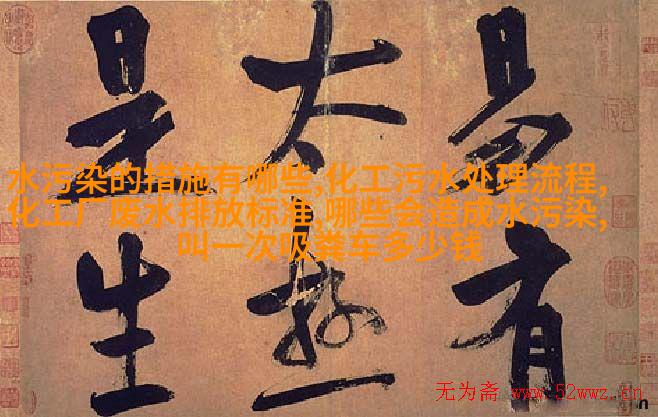 易有
太极
是生
水污染的措施有哪些,化工污水处理流程,
化工厂废水排放标准,哪些会造成水污染,
叫一次吸粪车多少钱
无为斋 www.52wwz.cn